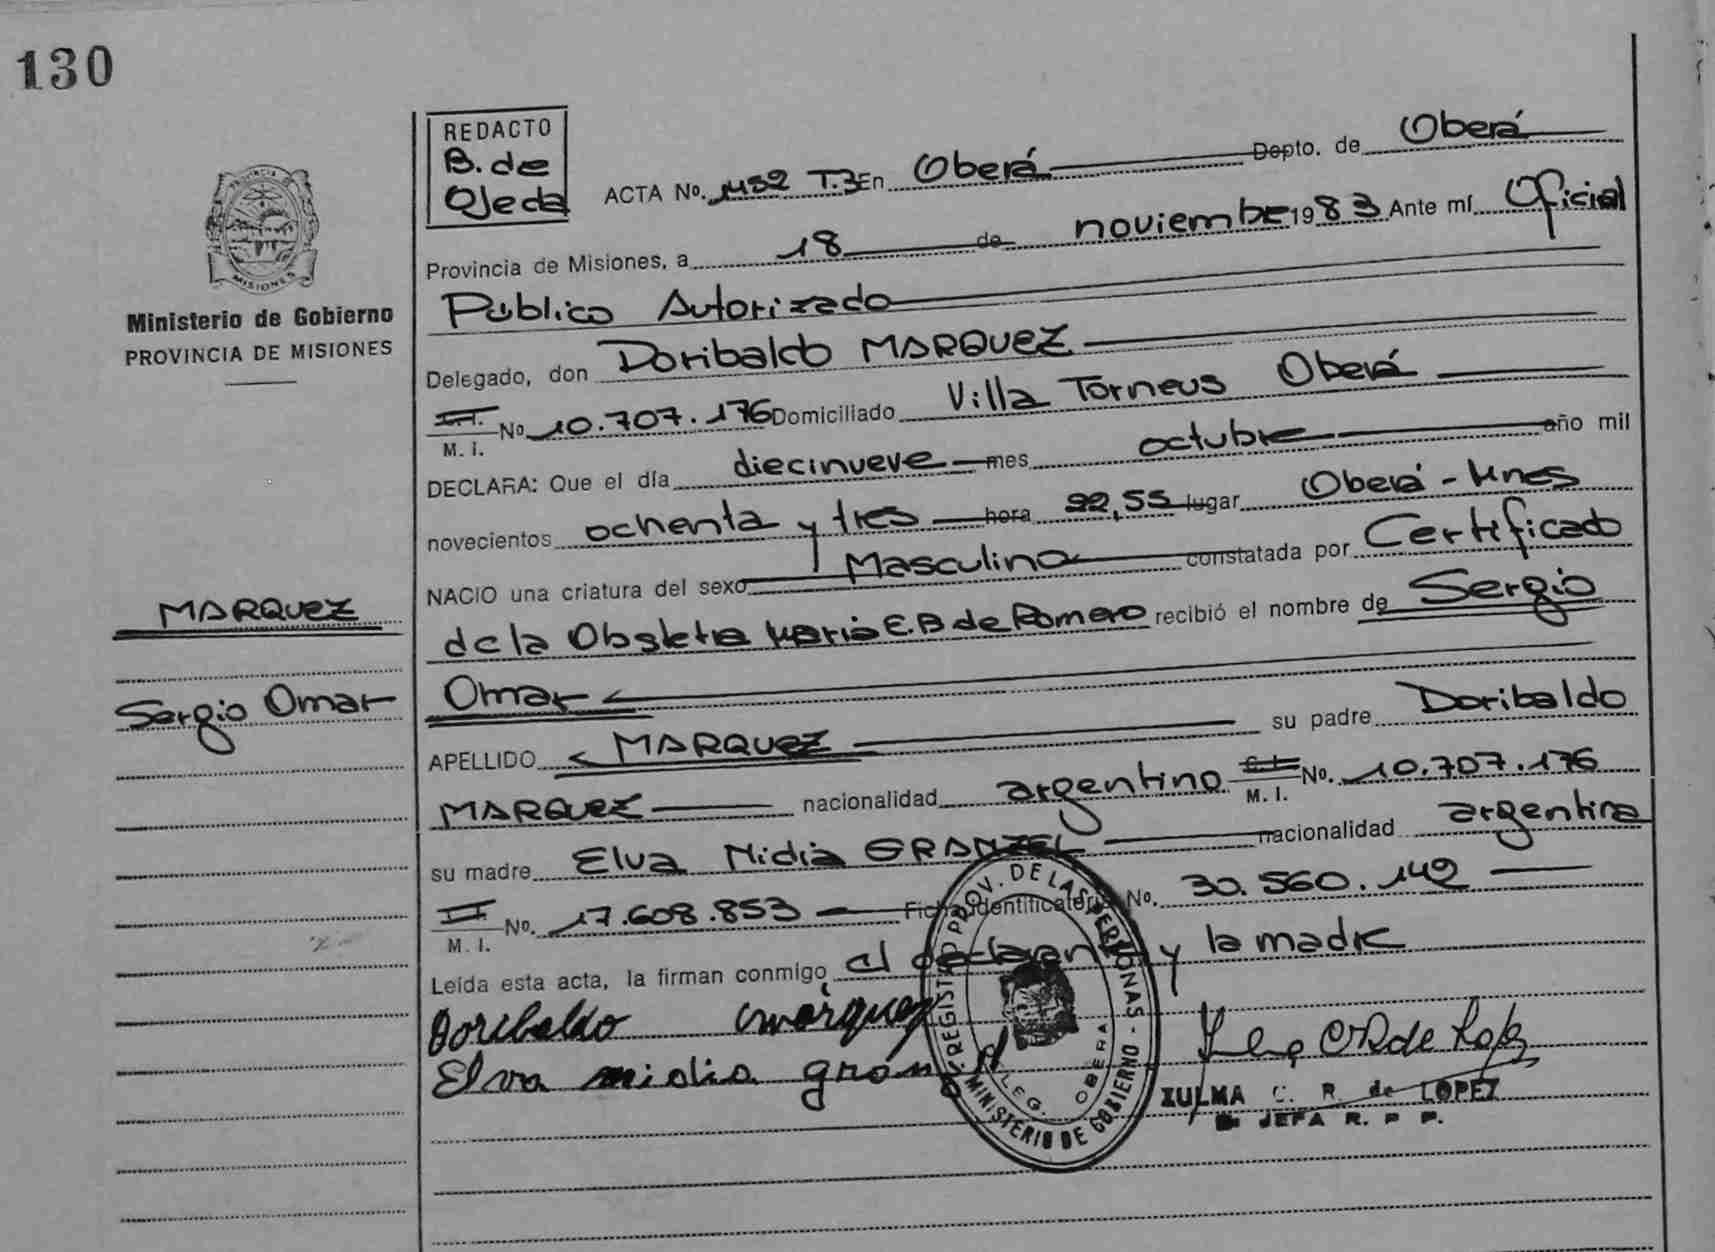 130
REDACTO
B. de
Ojeda
ACTA No. 1452 T.3 En Oberá Depto. de Oberá
Provincia de Misiones, a 18 de noviembre 1983 Ante mí Oficial
Público Autorizado
Delegado, don Doribaldo MARQUEZ
M. I. No 10.707.176 Domiciliado Villa Torneus Oberá
DECLARA: Que el día diecinueve mes octubre año mil
novecientos ochenta y tres hora 22,55 lugar Oberá - Mnes
NACIO una criatura del sexo Masculino constatada por Certificado
de la Obstetra Maria E.B de Romero recibió el nombre de Sergio
Omar
APELLIDO MARQUEZ su padre Doribaldo
MARQUEZ nacionalidad argentino M. I. No. 10.707.176
su madre Elva Nidia GRANZEL nacionalidad argentina
M. I. No. 17.608.853 Ficha identificatoria No. 30.560.142
Leída esta acta, la firman conmigo, el declarante y la madre
Doribaldo marquez
Elva nidia
ZULMA C. R. de LOPEZ
JEFA R. P. P.
REGISTRO PROV. DE LAS PERSONAS - MINISTERIO DE GOBIERNO
OBERA
PROVINCIA DE
MISIONES
Ministerio de Gobierno
PROVINCIA DE MISIONES
MARQUEZ
Sergio Omar